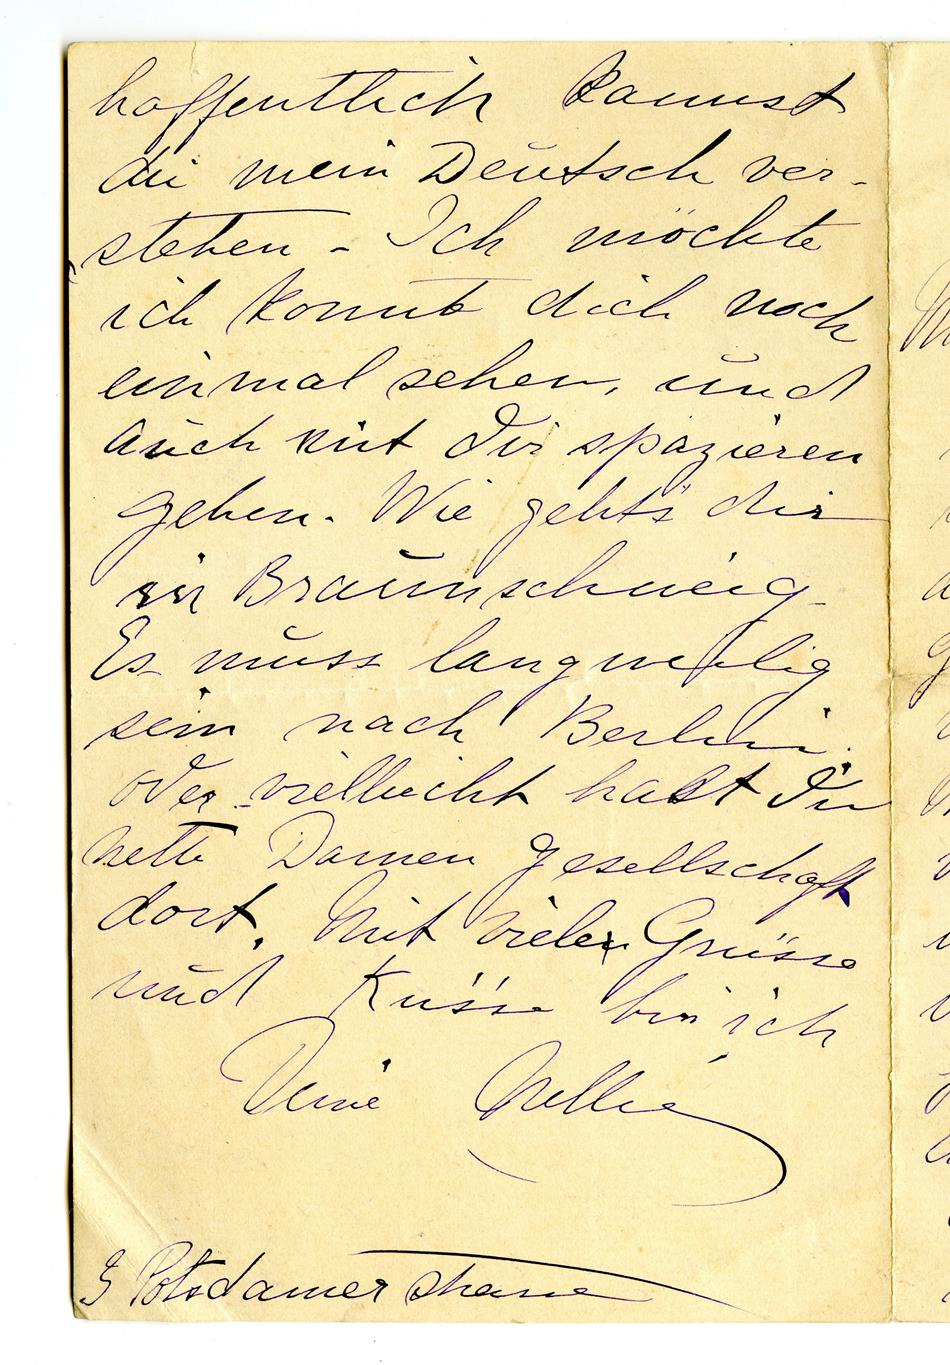 hoffentlich kannst
du mein Deutsch ver-
stehen - Ich möchte
ich konnte dich noch
einmal sehen, und
auch mit Dir spazieren
gehen. Wie geht's dir
in Braunschweig -
Es muss langweilig
sein nach Berlin.
oder vielleicht hast Du
nette Damen gesellschaft
dort. Mit vielen Grüsse
und Küsse bin ich
Deine Nellie
Potsdamer strasse